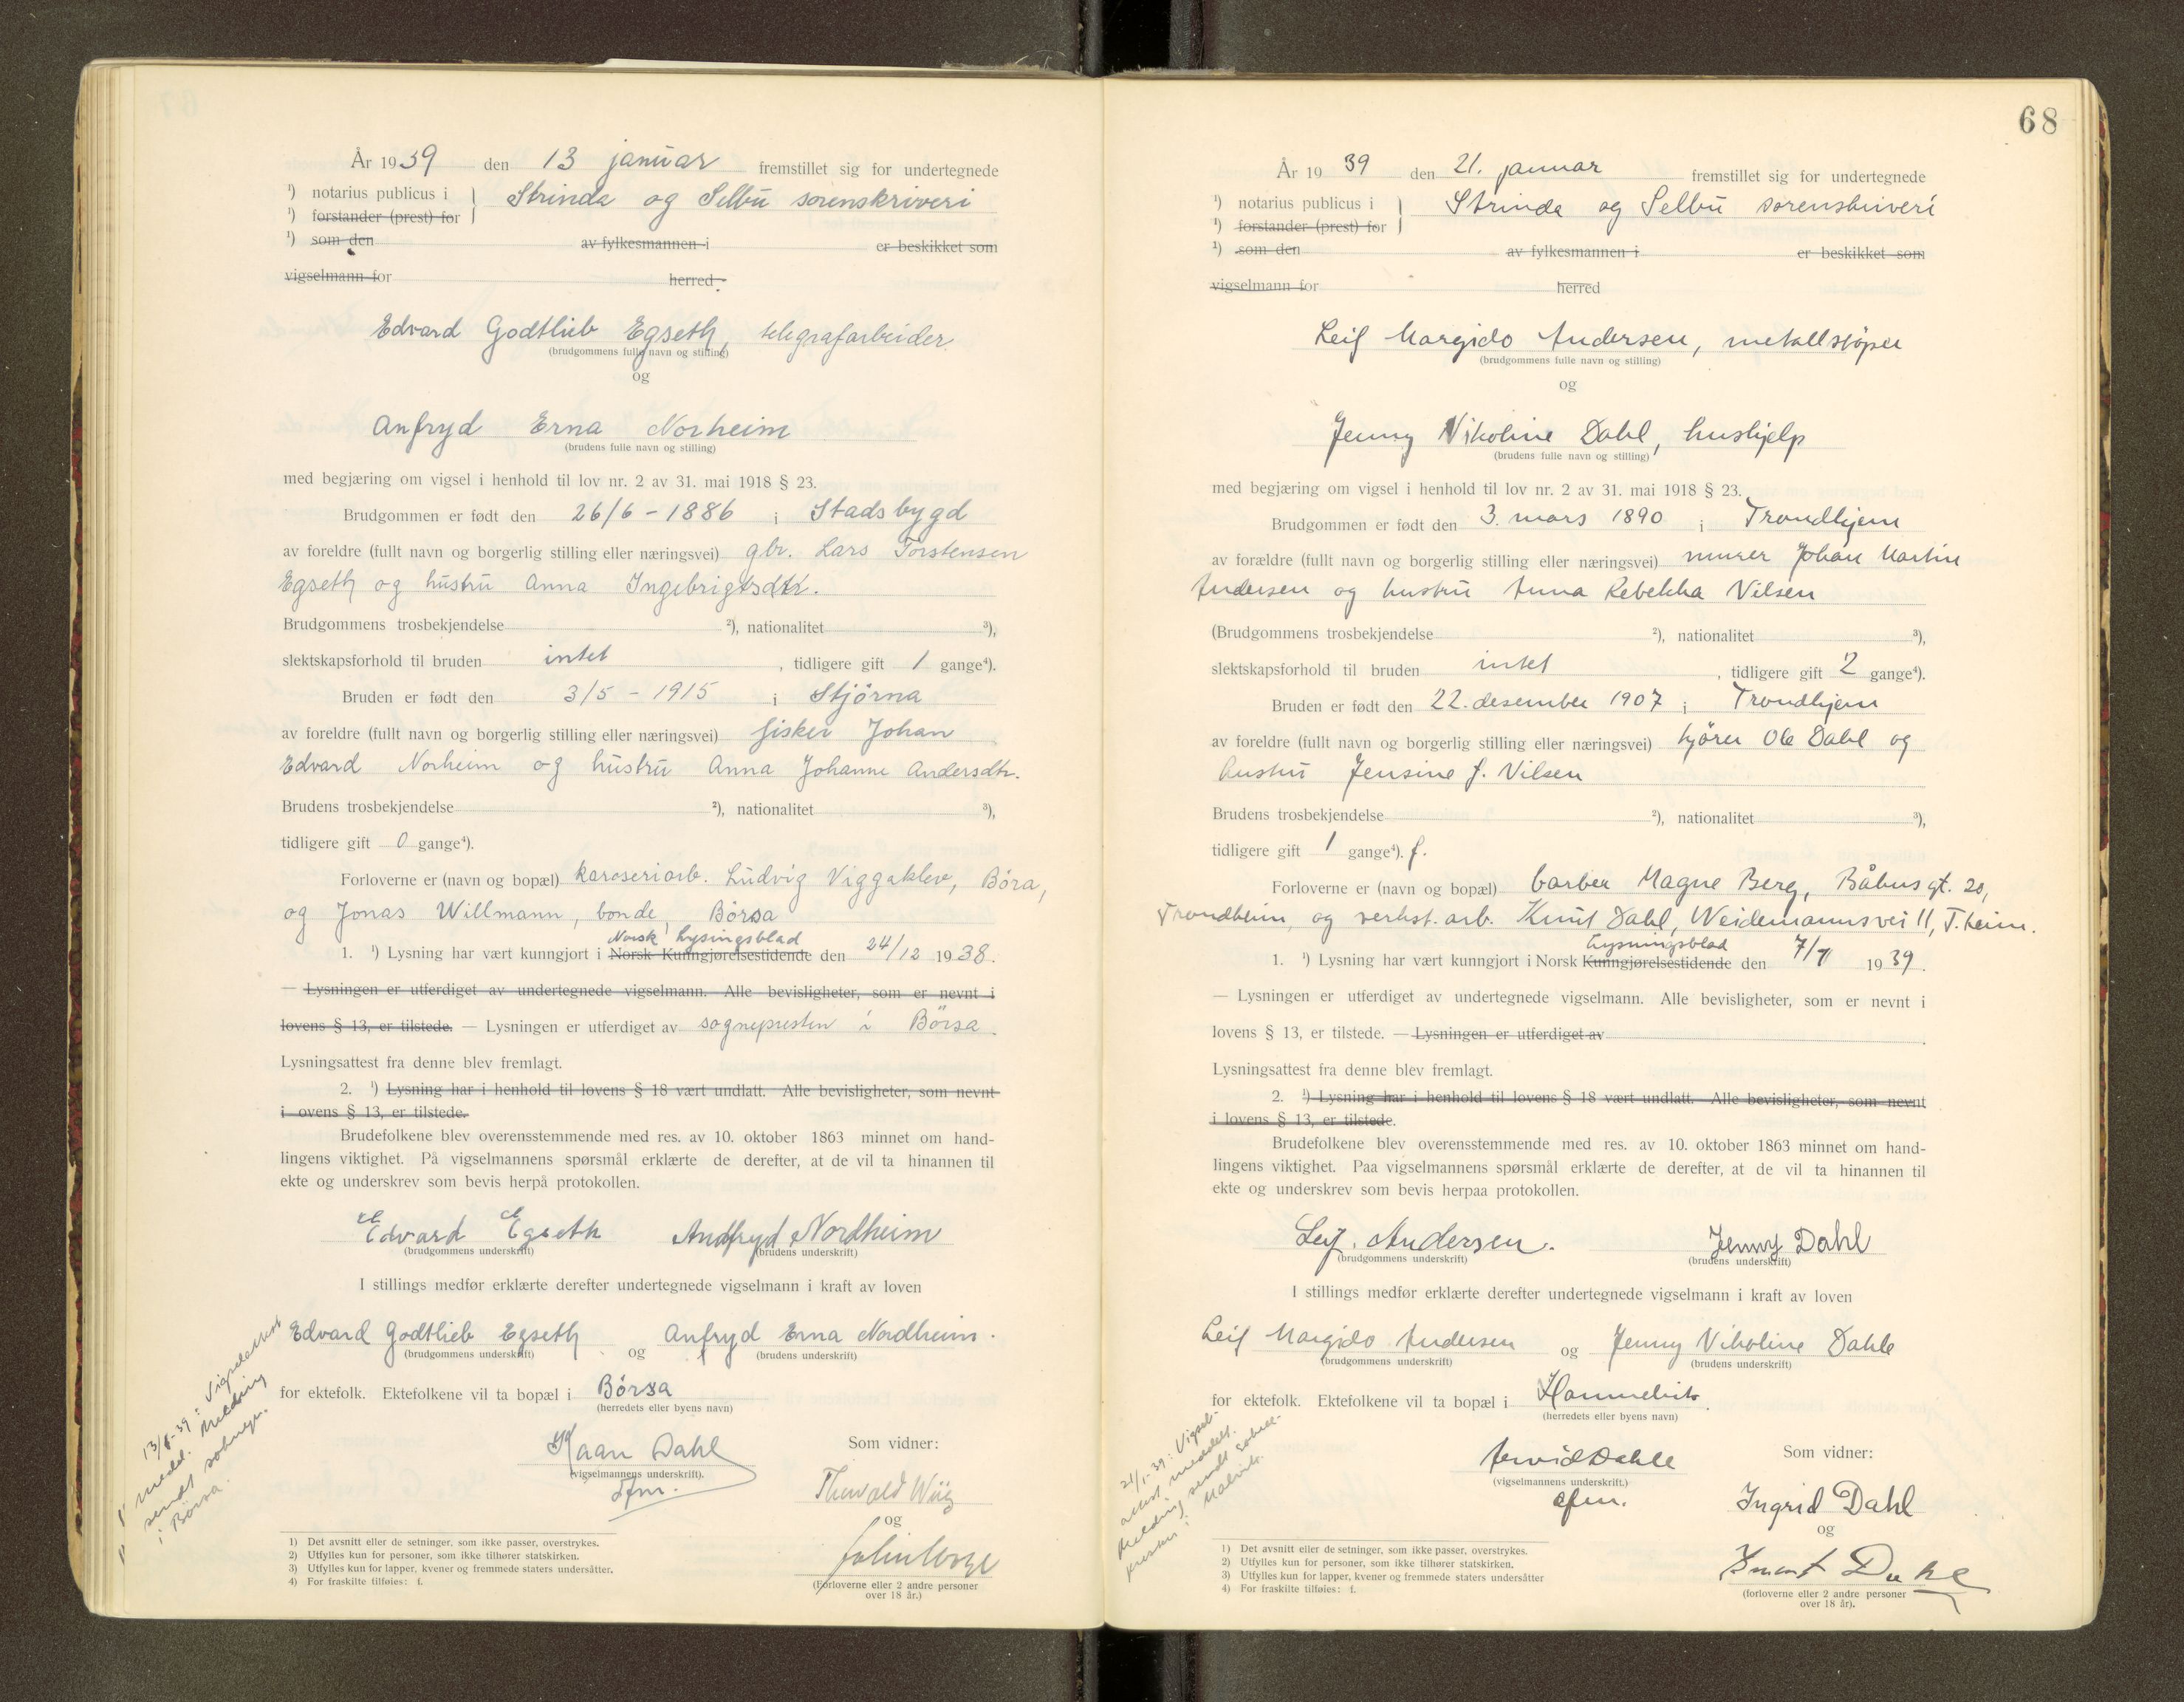 År 1939 den 13 januar fremstillet sig for undertegnede
¹) notarius publicus i } Strinda og Selbu sorenskriveri
¹) forstander (prest) for
¹) som den av fylkesmannen i er beskikket som
vigselmann for herred.
Edvard Godtlieb Egseth, telegrafarbeider
(brudgommens fulle navn og stilling)
og
Anfryd Erna Norheim
(brudens fulle navn og stilling)
med begjæring om vigsel i henhold til lov nr. 2 av 31. mai 1918 § 23.
Brudgommen er født den 26/6 - 1886 i Stadsbygd
av foreldre (fullt navn og borgerlig stilling eller næringsvei) gbr. Lars Torstensen
Egseth og hustru Anna Ingebrigtsdtr.
Brudgommens trosbekjendelse ²), nationalitet ³),
slektskapsforhold til bruden intet, tidligere gift 1 gange⁴).
Bruden er født den 3/5 - 1915 i Stjörna
av foreldre (fullt navn og borgerlig stilling eller næringsvei) fisker Johan
Edvard Norheim og hustru Anna Johanne Andersdtr.
Brudens trosbekjendelse ²), nationalitet ³),
tidligere gift 0 gange⁴).
Forloverne er (navn og bopæl) karoseriarb. Ludvig Viggaklev, Böra,
og Jonas Willmann, bonde, Börsa
Norsk Lysingsblad
1. ¹) Lysning har vært kunngjort i Norsk Kunngjørelsestidende den 24/12 1938.
— Lysningen er utferdiget av undertegnede vigselmann. Alle bevisligheter, som er nevnt i
lovens § 13, er tilstede. — Lysningen er utferdiget av sognepresten i Börsa.
Lysningsattest fra denne blev fremlagt.
2. ¹) Lysning har i henhold til lovens § 18 vært undlatt. Alle bevisligheter, som nevnt
i ovens § 13, er tilstede.
Brudefolkene blev overensstemmende med res. av 10. oktober 1863 minnet om hand-
lingens viktighet. På vigselmannens spørsmål erklærte de derefter, at de vil ta hinannen til
ekte og underskrev som bevis herpå protokollen.
Edvard Egseth Andfryd Nordheim
(brudgommens underskrift) (brudens underskrift)
I stillings medfør erklærte derefter undertegnede vigselmann i kraft av loven
Edvard Godtlieb Egseth og Anfryd Erna Nordheim.
(brudgommens underskrift) (brudens underskrift)
for ektefolk. Ektefolkene vil ta bopæl i Börsa
(herredets eller byens navn)
Kaan Dahl
(vigselmannens underskrift).
Som vidner:
Thorvald Wiig
og
(Forloverne eller 2 andre personer
over 18 år.)
13/1-39: Vigselattest
medd. Melding
sendt soknepr.
i Börsa.
1) Det avsnitt eller de setninger, som ikke passer, overstrykes.
2) Utfylles kun for personer, som ikke tilhører statskirken.
3) Utfylles kun for lapper, kvener og fremmede staters undersåtter.
4) For fraskilte tilføies: f.
68
År 1939 den 21. januar fremstillet sig for undertegnede
¹) notarius publicus i } Strinda og Selbu sorenskriveri
¹) forstander (prest) for
¹) som den av fylkesmannen i er beskikket som
vigselmann for herred
Leif Margido Andersen, metallstöper
(brudgommens fulle navn og stilling)
og
Jenny Nikoline Dahl, hushjelp
(brudens fulle navn og stilling)
med begjæring om vigsel i henhold til lov nr. 2 av 31. mai 1918 § 23.
Brudgommen er født den 3. mars 1890 i Trondhjem
av forældre (fullt navn og borgerlig stilling eller næringsvei) murer Johan Martin
Andersen og hustru Anna Rebekka Nilsen
(Brudgommens trosbekjendelse ²), nationalitet ³),
slektskapsforhold til bruden intet, tidligere gift 2 gange⁴).
Bruden er født den 22. desember 1907 i Trondhjem
av foreldre (fullt navn og borgerlig stilling eller næringsvei) kjører Ole Dahl og
hustru Jensine f. Nilsen
Brudens trosbekjendelse ²), nationalitet ³),
tidligere gift 1 gange⁴). f.
Forloverne er (navn og bopæl) barber Magne Berg, Båhus gt. 20,
Trondheim, og verkst. arb. Knut Dahl, Weidemannsvei 11, T.heim.
Lysningsblad
1. ¹) Lysning har vært kunngjort i Norsk Kunngjørelsestidende den 7/1 1939.
— Lysningen er utferdiget av undertegnede vigselmann. Alle bevisligheter, som er nevnt i
lovens § 13, er tilstede. — Lysningen er utferdiget av
Lysningsattest fra denne blev fremlagt.
2. ¹) Lysning har i henhold til lovens § 18 vært undlatt. Alle bevisligheter, som nevnt
i lovens § 13, er tilstede.
Brudefolkene blev overensstemmende med res. av 10. oktober 1863 minnet om hand-
lingens viktighet. Paa vigselmannens spørsmål erklærte de derefter, at de vil ta hinannen til
ekte og underskrev som bevis herpaa protokollen.
Leif. Andersen. Jenny Dahl
(brudgommens underskrift) (brudens underskrift)
I stillings medfør erklærte derefter undertegnede vigselmann i kraft av loven
Leif Margido Andersen og Jenny Nikoline Dahle
(brudgommens underskrift) (brudens underskrift)
for ektefolk. Ektefolkene vil ta bopæl i Hommelvik.
(herredets eller byens navn)
Arvid Dahle
(vigselmannens underskrift.)
efm.
Som vidner:
Ingrid Dahl
og
Knut Dahl
(forloverne eller 2 andre personer
over 18 år).
21/1-39: Vigsel-
attest meddelt.
Melding sendt sokne-
presten i Malvik.
1) Det avsnitt eller de setninger, som ikke passer, overstrykes.
2) Utfylles kun for personer, som ikke tilhører statskirken.
3) Utfylles kun for lapper, kvener og fremmede staters undersåtter
4) For fraskilte tilføies: f.